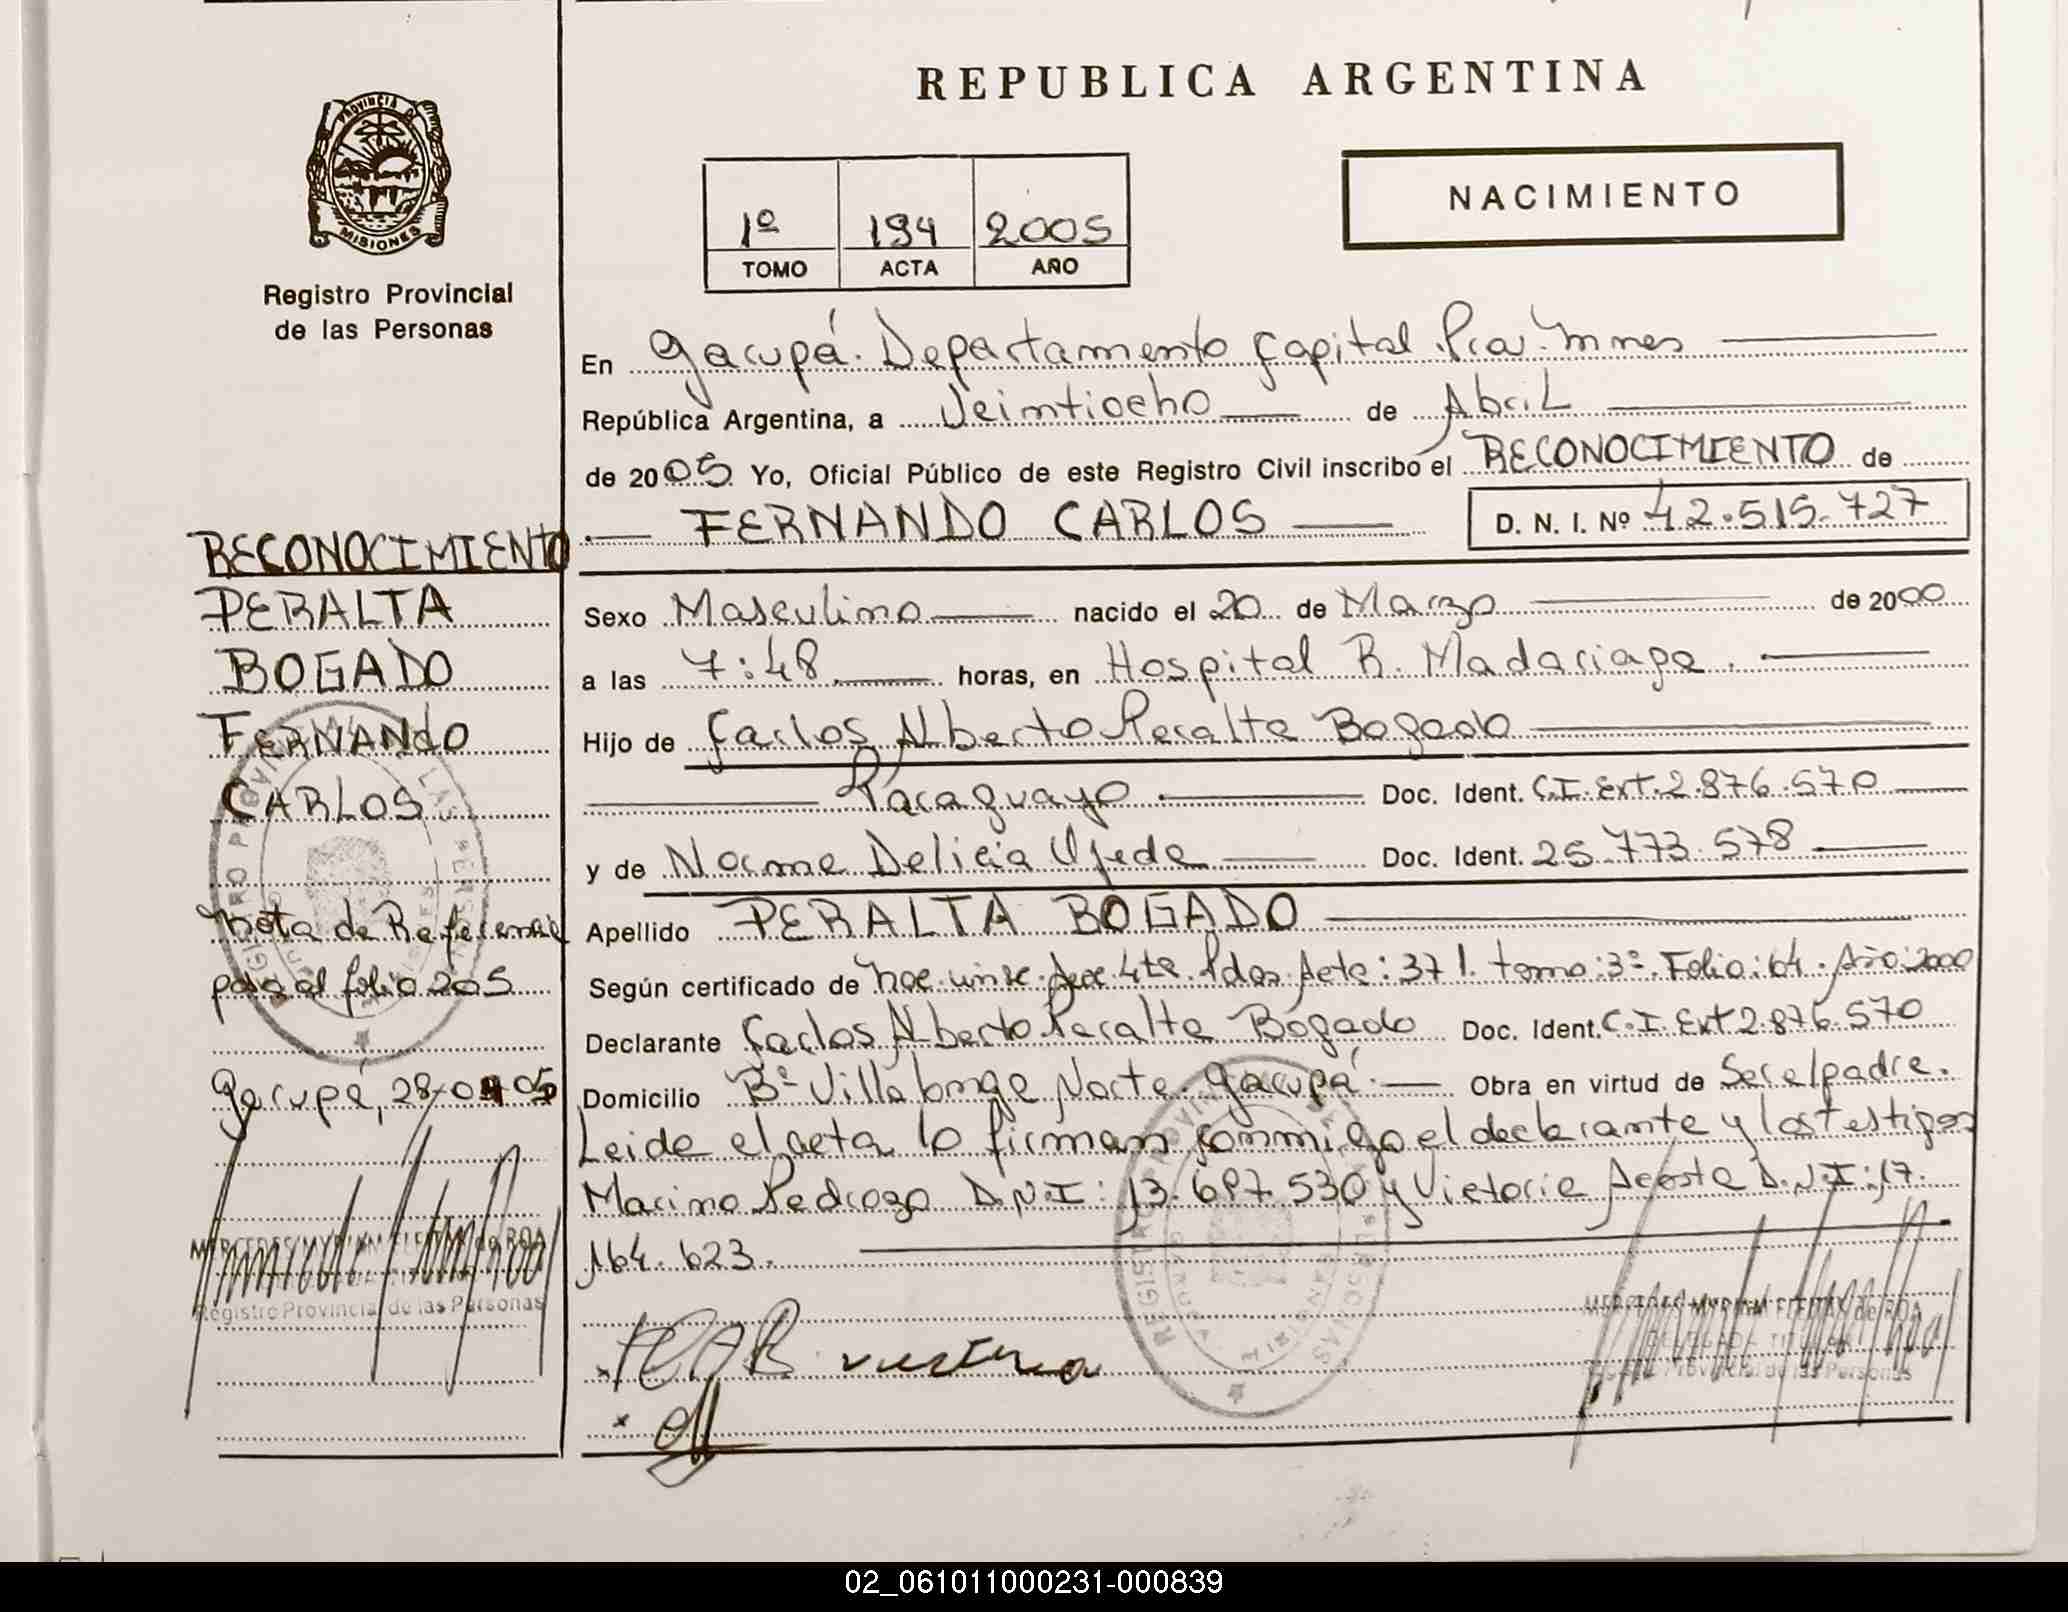 REPUBLICA ARGENTINA
PROVINCIA DE
MISIONES
Registro Provincial
de las Personas
NACIMIENTO
1º 194 2005
TOMO ACTA AÑO
En Garupá. Departamento Capital. Pcia. Mnes
República Argentina, a Veintiocho de Abril
de 2005 Yo, Oficial Público de este Registro Civil inscribo el RECONOCIMIENTO de
FERNANDO CARLOS D. N. I. Nº 42.515.727
Sexo Masculino nacido el 20 de Marzo de 2000
a las 7:48 horas, en Hospital R. Madariaga.
Hijo de Carlos Alberto Peralta Bogado
Paraguayo Doc. Ident. C.I. Ext. 2.876.570
y de Norma Delicia Ojeda Doc. Ident. 25.773.578
Apellido PERALTA BOGADO
Según certificado de 4ta. Pdas. Acta: 371. tomo: 3º. Folio: 64. Año: 2000
Declarante Carlos Alberto Peralta Bogado Doc. Ident. C.I. Ext 2.876.570
Domicilio Bº Villa Longa Norte. Garupá. Obra en virtud de Ser el padre.
Leida el acta lo firman conmigo el declarante y los testigos
Marino Pedrozo D.N.I: 13.697.530 y Victoria Acosta D.N.I: 17.
164.623.
RECONOCIMIENTO
PERALTA
BOGADO
FERNANDO
CARLOS
Nota de Referencia
pasa al folio 205
Garupá, 28-04-05
MERCEDES MYRIAM de ROA
Registro Provincial de las Personas
victoria
MERCEDES MYRIAM de ROA
DELEGADA TITULAR
Registro Provincial de las Personas
02_061011000231-000839